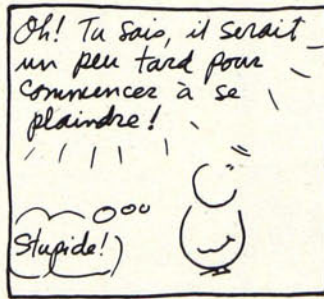 Oh! Tu sais, il serait
un peu tard pour
commencer à se
plaindre!
Stupide!